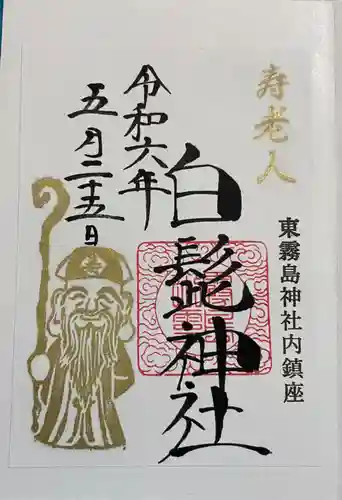 寿老人
東霧島神社内鎮座
白髭神社
令和六年
五月二十五日